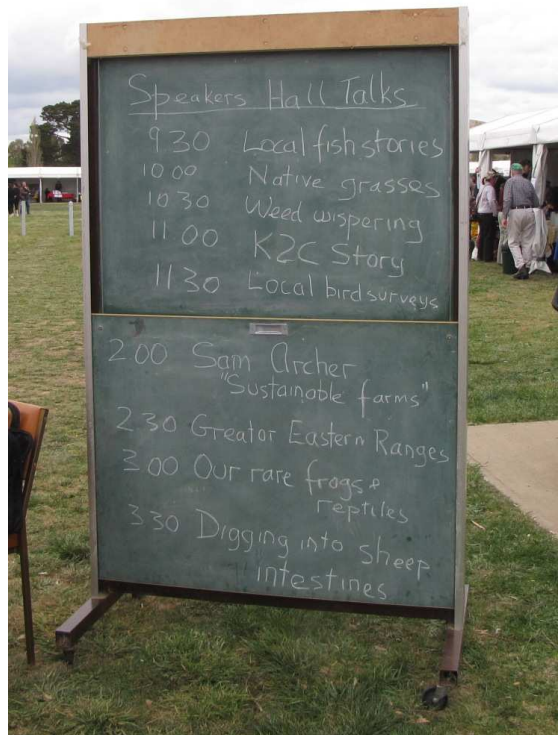 Speakers Hall Talks
9 30 Local fish stories
10 00 Native grasses
10 30 Weed wispering
11 00 K2C Story
11 30 Local bird surveys
2 00 Sam Archer
"Sustainable farms"
2 30 Greator Eastern Ranges
3 00 Our rare frogs &
reptiles
3 30 Digging into sheep
intestines